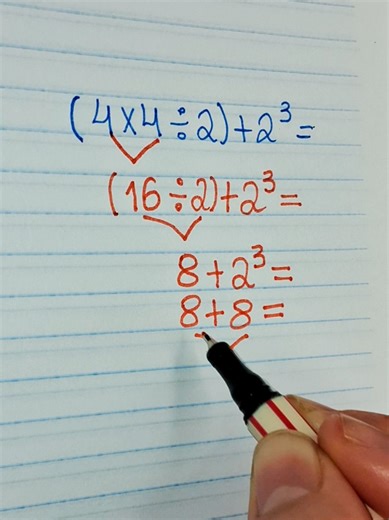 (4×4÷2)+2³=
(16÷2)+2³=
8+2³=
8+8=